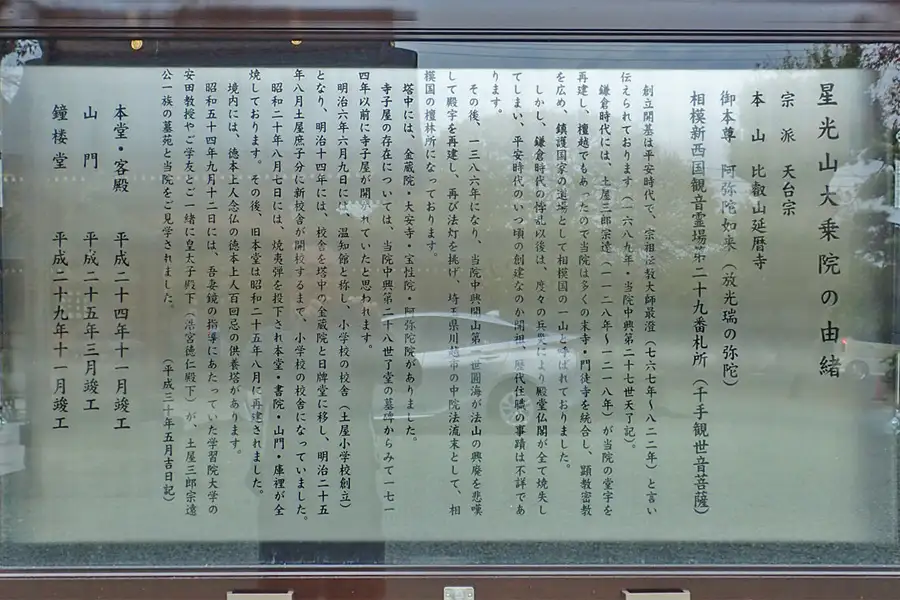 星光山大乗院の由緒
宗派 天台宗
本山 比叡山延暦寺
御本尊 阿弥陀如来(放光瑞の弥陀)
相模新西国観音霊場第二十九番札所(千手観世音菩薩)
創立開基は平安時代で、宗祖伝教大師最澄(七六七年〜八二二年)と言い
伝えられております(一六八九年・当院中興第二十七世天了記)。
鎌倉時代には、土屋三郎宗遠(一一二八年〜一二一八年)が当院の堂宇を
再建し、檀越でもあったので当院は多くの末寺・門徒寺を統合し、顕教密教
を広め、鎮護国家の道場として相模国の一山と呼ばれておりました。
しかし、鎌倉時代の惨乱以後は、度々の兵災により殿堂仏閣が全て焼失し
てしまい、平安時代のいつ頃の創建なのか開祖・歴代住職の事蹟は不詳であ
ります。
その後、一三八六年になり、当院中興開山第一世圓海が法山の興廃を悲嘆
して殿宇を再建し、再び法灯を挑げ、埼玉県川越市の中院法流末として、相
模国の檀林所になっております。
塔中には、金蔵院・大安寺・宝性院・阿弥陀院がありました。
寺子屋の存在については、当院中興第二十八世了堂の墓碑からみて一七一
四年以前に寺子屋が開かれていたと思われます。
明治六年六月九日には、温知館と称し、小学校の校舎(土屋小学校創立)
となり、明治十四年には、校舎を塔中の金蔵院と日牌堂に移し、明治二十五
年八月土屋庶子分に新校舎が開校するまで、小学校の校舎になっていました。
昭和二十年八月七日には、焼夷弾を投下され本堂・書院・山門・庫裡が全
焼しております。その後、旧本堂は昭和二十五年八月に再建されました。
境内には、徳本上人念仏の徳本上人百回忌の供養塔があります。
昭和五十四年九月十二日には、吾妻鏡の指導にあたっていた学習院大学の
安田教授やご学友とご一緒に皇太子殿下(浩宮徳仁殿下)が、土屋三郎宗遠
公一族の墓苑と当院をご見学されました。
(平成三十年五月吉日記)
本堂・客殿 平成二十四年十一月竣工
山門 平成二十五年三月竣工
鐘楼堂 平成二十九年十一月竣工